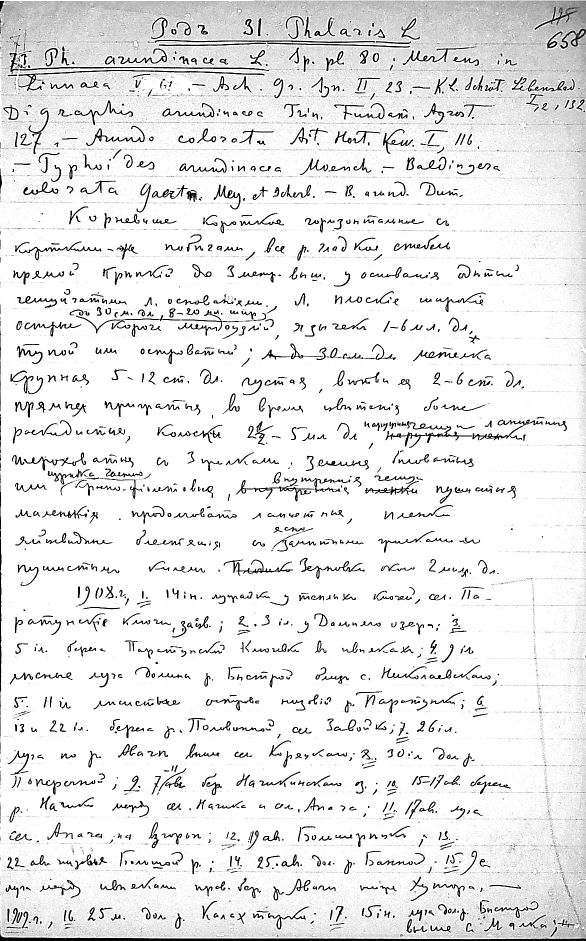 658
Родъ 31. Phalaris L
73. Ph. arundinacea L. Sp. pl 80; Mertens in
Linnaea V, 61 - Asch. Gr. Syn. II, 23. - K. L. Schröt. Lebensbd
I, 2, 132
Digraphis arundinacea Trin. Fundam. Agrost.
127. - Arundo colorata Ait. Hort. Kew. I, 116.
- Typhoides arundinacea Moench. - Baldingera
colorata Gaertn. Mey. et Scherb. - B. arund. Dum.
Корневище короткое горизонтальное съ
короткими побѣгами, все р. гладкое, стебель
прямой крѣпкій до 3 метр. выш. у основанія одѣтый
чешуйчатыми Л. основаніями, Л. плоскіе широкіе
до 30 см. дл, 8-20 мм. шир
острые короче междоузлій, язычекъ 1-6 мл. дл,
тупой или островатый; до 30 см. дл метелка
крупная 5-12 ст. дл. густая, вѣтви ея 2-6 ст. дл.
прямыя прижатыя, во время цвѣтенія болѣе
раскидистыя, колоски 2½-5 мл дл, наружныя чешуи ланцетныя
шероховатыя съ 3 жилками. Зеленыя, бѣловатыя
изрѣдка
или фіолетовыя, внутреннія чешуи пушистыя
маленькія продолговато ланцетныя, пленки
яйцевидные блестящія съ замѣтными жилками
пушистымъ килемъ. Зерновка около 2 мм. дл.
1908 г., 1. 14 іюн. у теплыхъ ключей, сел. Па-
ратунскіе Ключи, ; 2. 3 іл. у Дальняго озера; 3.
5 іл. берега Паратунскій Ключевки въ ивнякахъ; 4. 9 іл
луга долина р. Быстрой близъ с. Николаевскаго;
5. 11 іл острова низовій р. Паратунки; 6.
13 и 22 іл. берега р. Половинной, сел Завойко; 7. 26 іл.
луга по р. Авачѣ выше сел Коряцкаго; 8. 30 іл дол р.
Поперечной; 9. 7 бер Начикинскаго оз; 10. 15-17 ав. берега
р. Начика между сел. Начика и сел. Апача; 11. 17 ав. луга
сел. Апача, на взгорьи; 12. 19 ав. Большерѣцкъ; 13.
22 ав. низовья Большой р; 14. 25 ав. дол. р. Банной; 15. 9 с
луга между ивняками прав. бер р. Авачи ниже Хутора, —
1909 г., 16. 25 м. дол р. Калахтырки; 17. 15 іюн. луга дол. р. Быстрой
выше с. Малка;